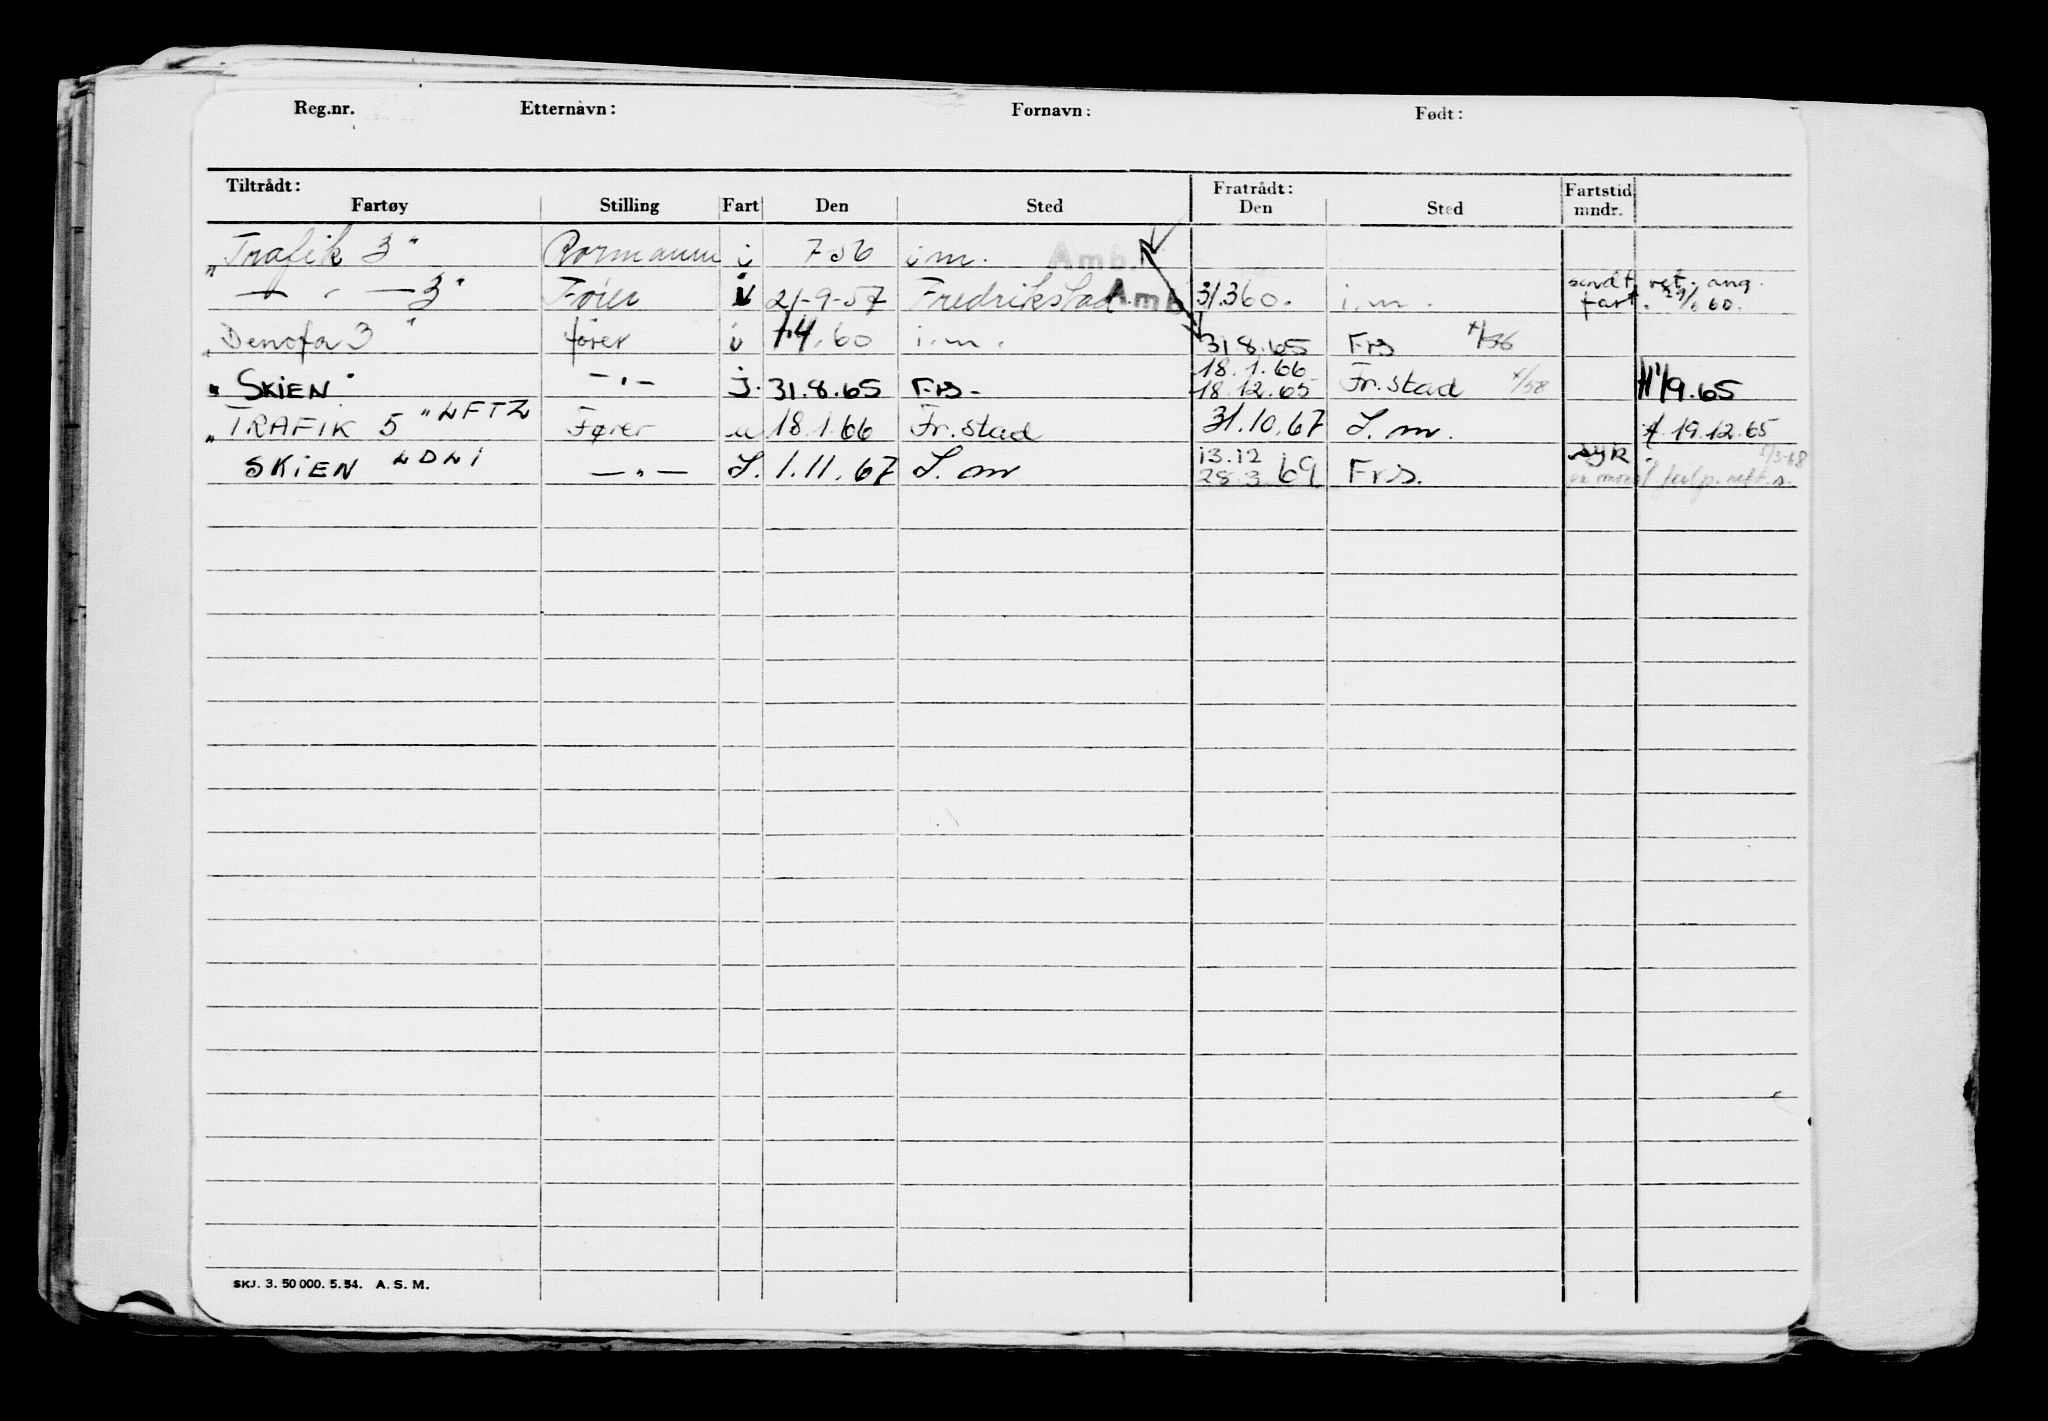 Reg.nr. Etternavn: Fornavn: Født:
Tiltrådt: Fratrådt: Fartstid
Fartøy Stilling Fart Den Sted Den Sted mndr.
"Trafik 3" Pormann i 7 56 i.m. Amb.
— " — 3" Fører i 21-9-57 Fredrikstad Amb 31.3 60. i.m. sendt ret. ang. fart. 29/6 60.
"Denofa 3" fører i 1.4.60 i.m. 31.8.65 Frs
18.1.66
"SKIEN" — " — J. 31.8.65 Frs- 18.12.65 Fr.stad 4/58 1/9.65
"TRAFIK 5" LFTZ Fører u 18.1.66 Fr.stad 31.10.67 I.m. 19.12.65
13.12 syk 5/3-68
SKIEN LDLI — " — I. 1.11.67 I.m 28.3.69 Frs.
SKJ. 3. 50 000. 5. 54. A. S. M.